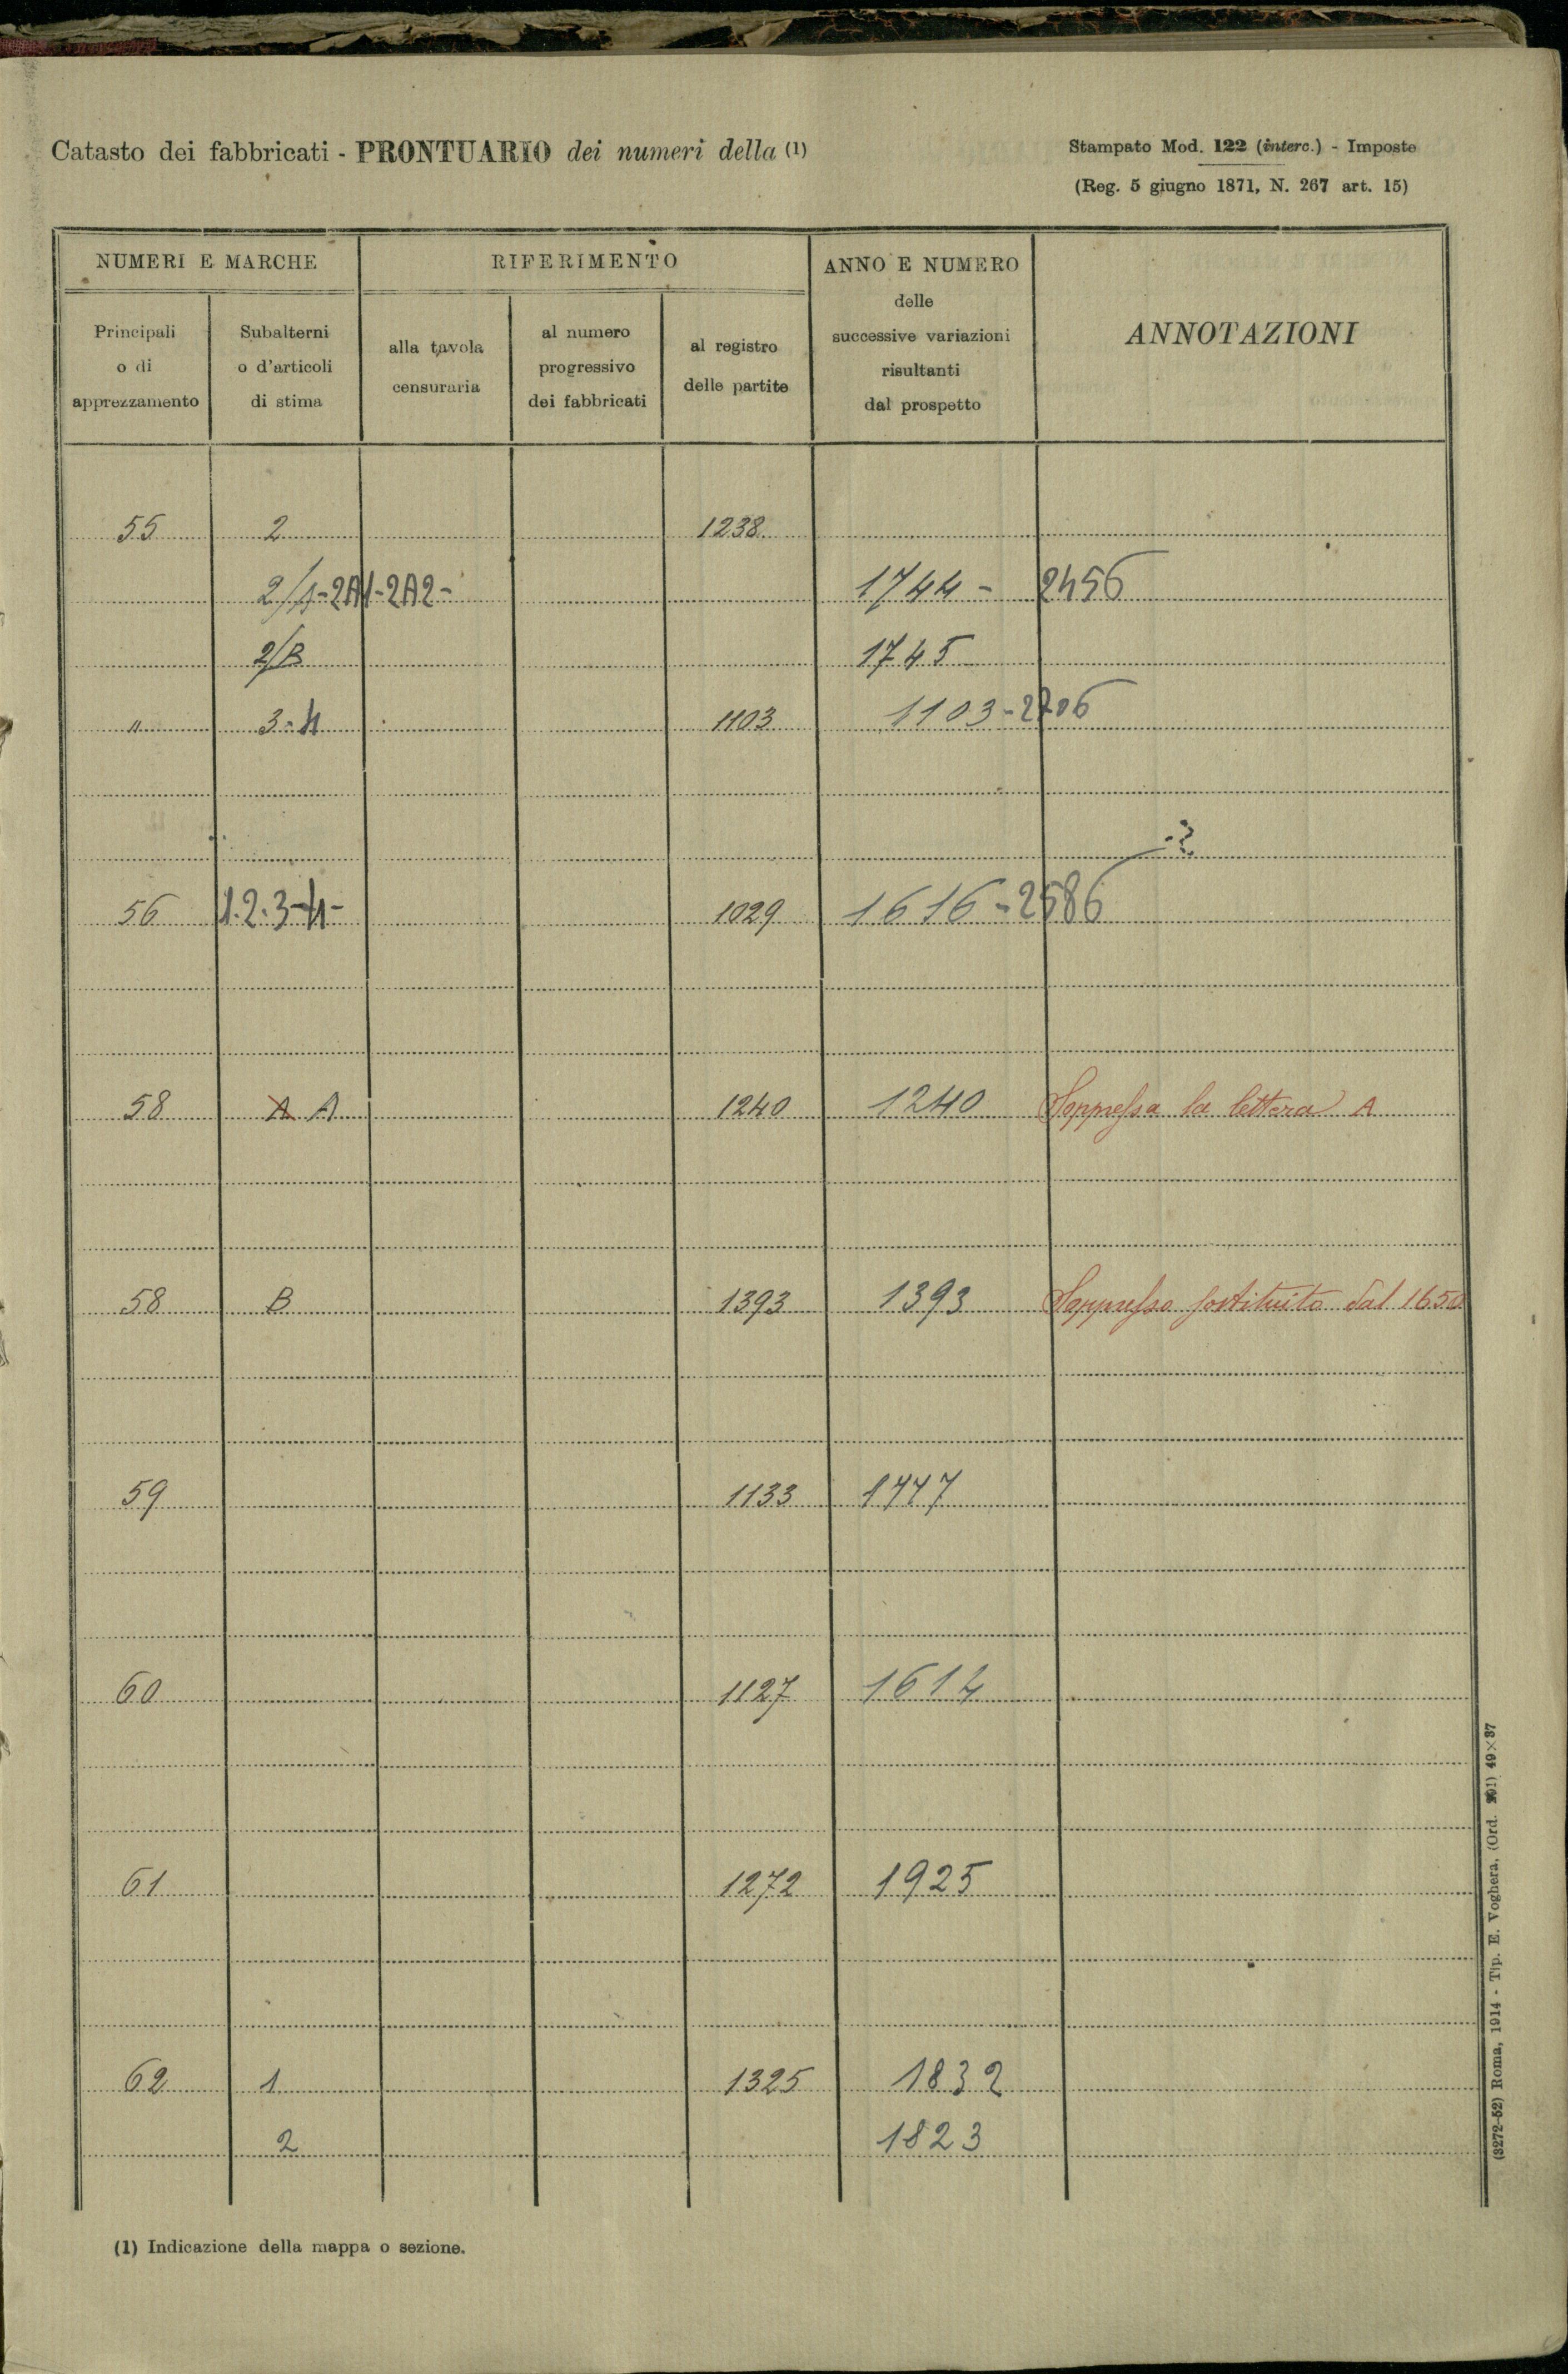 Catasto dei fabbricati - PRONTUARIO dei numeri della (1)
Stampato Mod. 122 (interc.) - Imposte
(Reg. 5 giugno 1871, N. 267 art. 15)
NUMERI E MARCHE
RIFERIMENTO
ANNO E NUMERO
delle
successive variazioni
risultanti
dal prospetto
ANNOTAZIONI
Principali
o di
apprezzamento
Subalterni
o d'articoli
di stima
alla tavola
censuraria
al numero
progressivo
dei fabbricati
al registro
delle partite
55 2 1238
2/1-2A1-2A2- 1744 - 2456
2/B 1745
" 3-4 1103 1103-2706
-?
56 1.2.3-4- 1029 1616-2586
58 A A 1240 1240 Soppressa la lettera A
58 B 1393 1393 Soppresso sostituito dal 1650
59 1133 1447
60 1127 1614
61 1272 1925
62 1 1325 1832
2 1823
(1) Indicazione della mappa o sezione.
(3272-52) Roma, 1914 - Tip. E. Voghera, (Ord. 201) 49×37